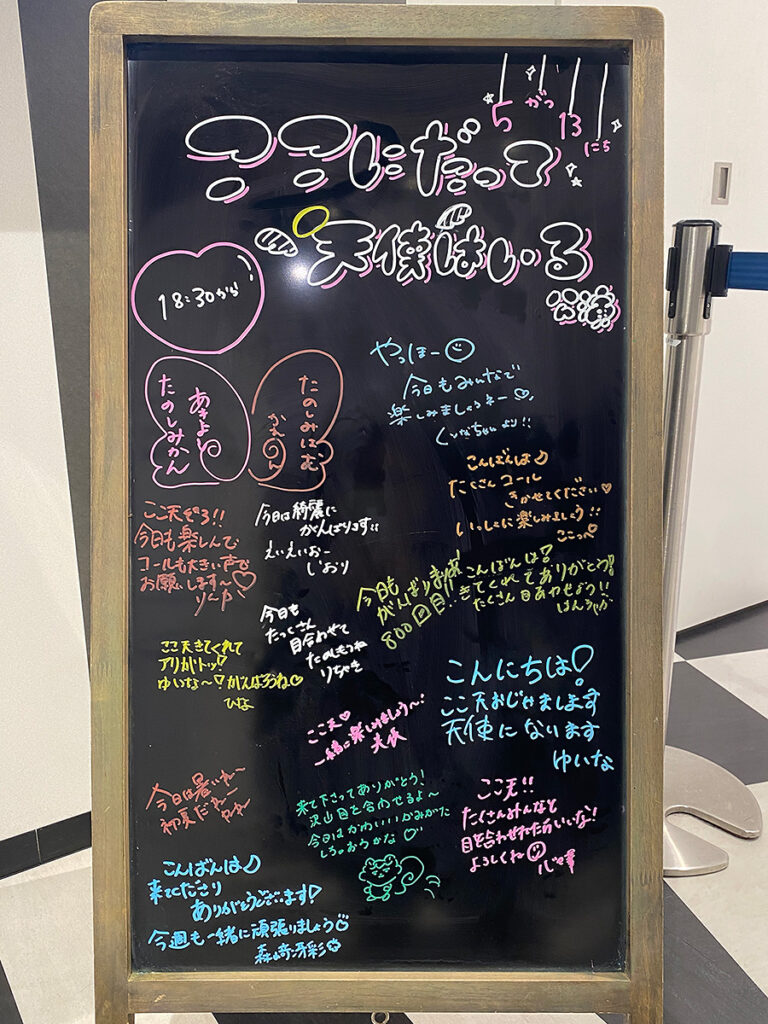 5がつ13にち
ここにだって
天使はいる
公演
18:30から
たのしみほむ
かれん
あきよし
たのしみかん
やっほー
今日もみんなで
楽しみましょうネー♡
くんなちゃんより!!
こんばんは♪
たくさんコール
きかせてください♡
いっしょに楽しみましょう!!
ここっぺ♡
ここ天ぞろ!!
今日も楽しんで
コールも大きい声で
お願いします〜♡
りーか
今日は綺麗に
がんばります!!
えいえいおー
しおり
今日も
がんばります!
800回目!!
こんばんは!
きてくれてありがとう!
たくさん目あわせよう!!
今日も
たっくさん
目合わせて
たのしもうね
りちゃき
ここ天きてくれて
アリガトッ!
ゆいな〜!がんばろうね♡
ひな
こんにちは!
ここ天おじゃまします
天使になります
ゆいな
ここ天♡
一緒に楽しみましょう〜!
今日は暑いね〜
初夏だねー
来て下さってありがとう!
沢山目を合わせるよ〜
今日はかわいいかみがた
しちゃおうかな♡
ここ天!!
たくさんみんなと
目を合わせれたらいいな!
よろしくね
こんばんは♪
来てくださり
ありがとうございます!
今週も一緒に頑張りましょう
森﨑冴彩